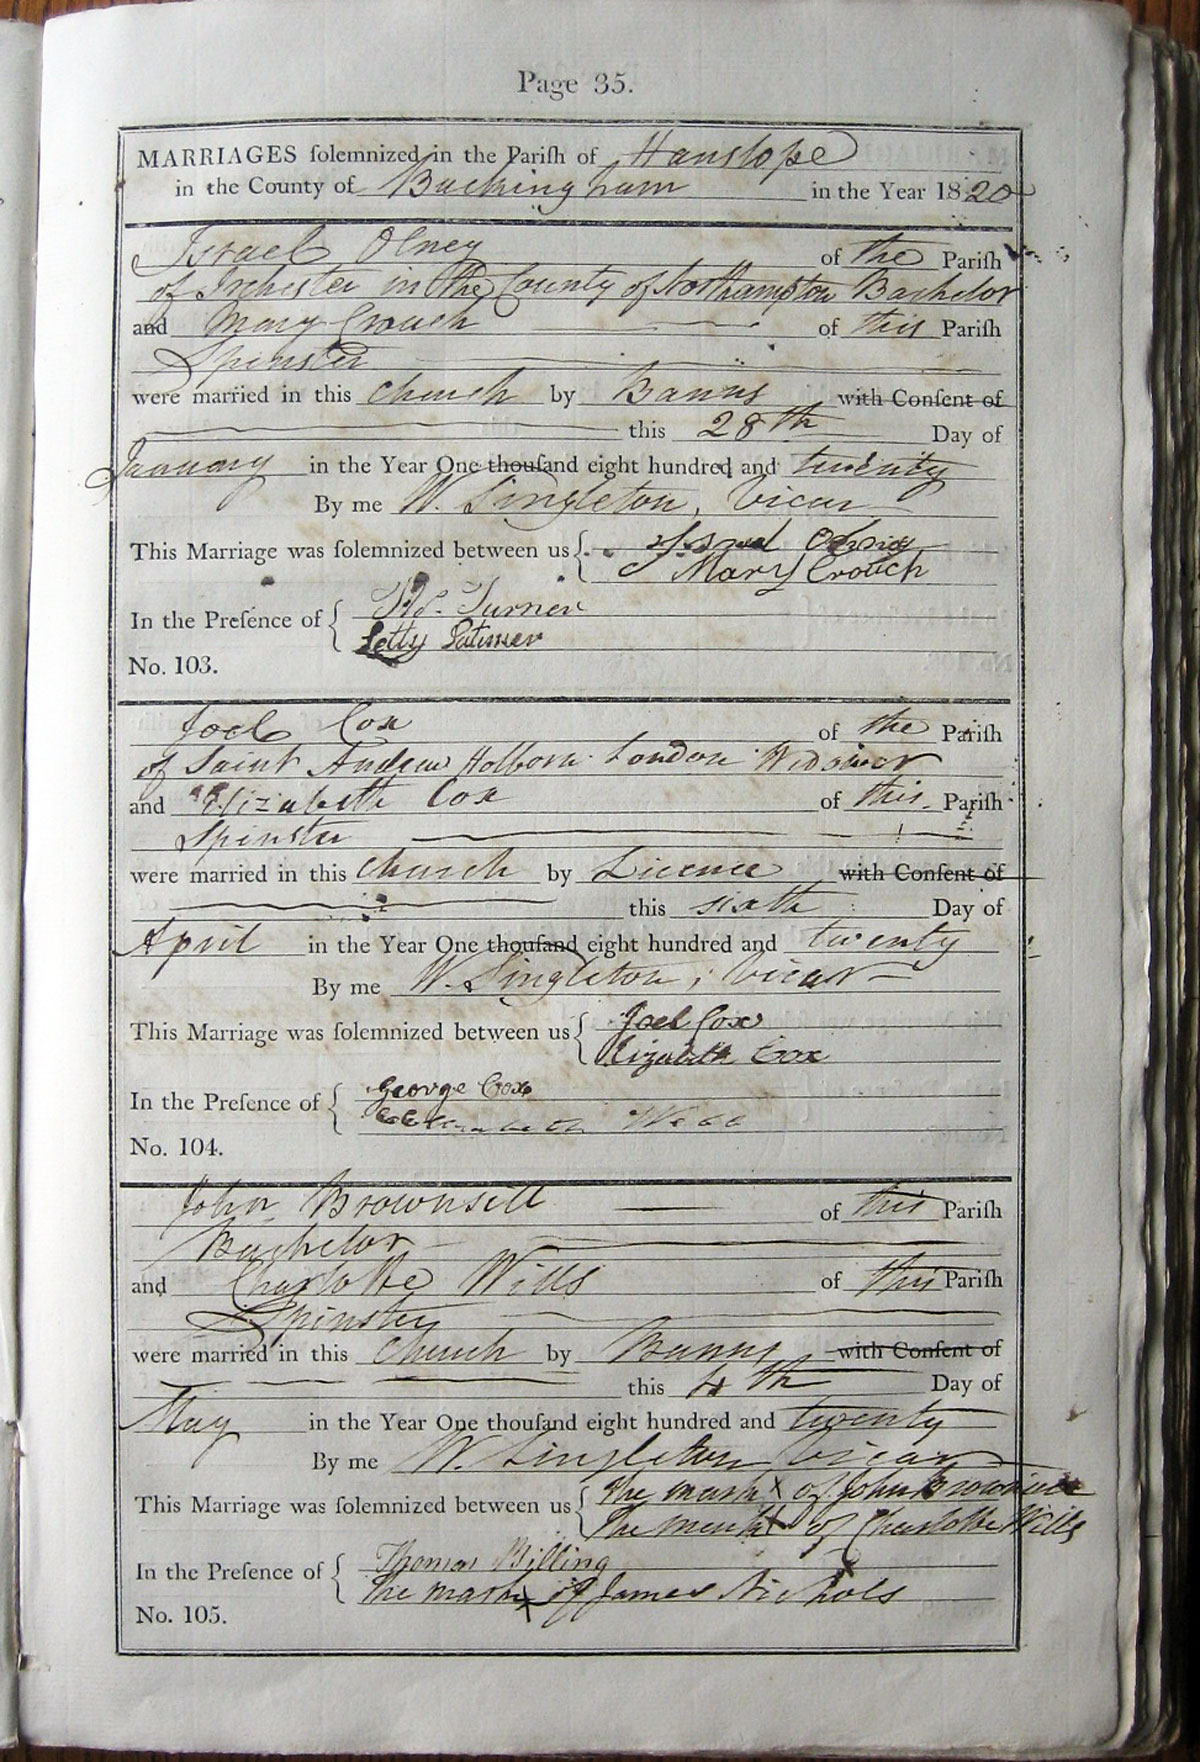 Page 35.
MARRIAGES ſolemnized in the Pariſh of Hanslope
in the County of Buckingham in the Year 1820
Israel Olney of the Pariſh
of Irchester in the County of Northampton Bachelor
and Mary Crouch of this Pariſh
Spinster
were married in this Church by Banns with Conſent of
this 28th Day of
January in the Year One thouſand eight hundred and twenty
By me W. Singleton, Vicar
This Marriage was ſolemnized between us Israel Olney
Mary Crouch
In the Preſence of Turner
Letty Latimer
No. 103.
Joel Cox of the Pariſh
of Saint Andrew Holborn London Widower
and Elizabeth Cox of this Pariſh
Spinster
were married in this Church by Licence with Conſent of
this sixth Day of
April in the Year One thouſand eight hundred and twenty
By me W. Singleton, Vicar
This Marriage was ſolemnized between us Joel Cox
Elizabeth Cox
In the Preſence of George Cox
Webb
No. 104.
John Brownsill of this Pariſh
Bachelor
and Charlotte Wills of this Pariſh
Spinster
were married in this Church by Banns with Conſent of
this 4th Day of
May in the Year One thouſand eight hundred and twenty
By me W. Singleton Vicar
This Marriage was ſolemnized between us The mark X of John Brownsill
The mark X of Charlotte Wills
In the Preſence of Thomas Billing
The mark X of James Nichols
No. 105.